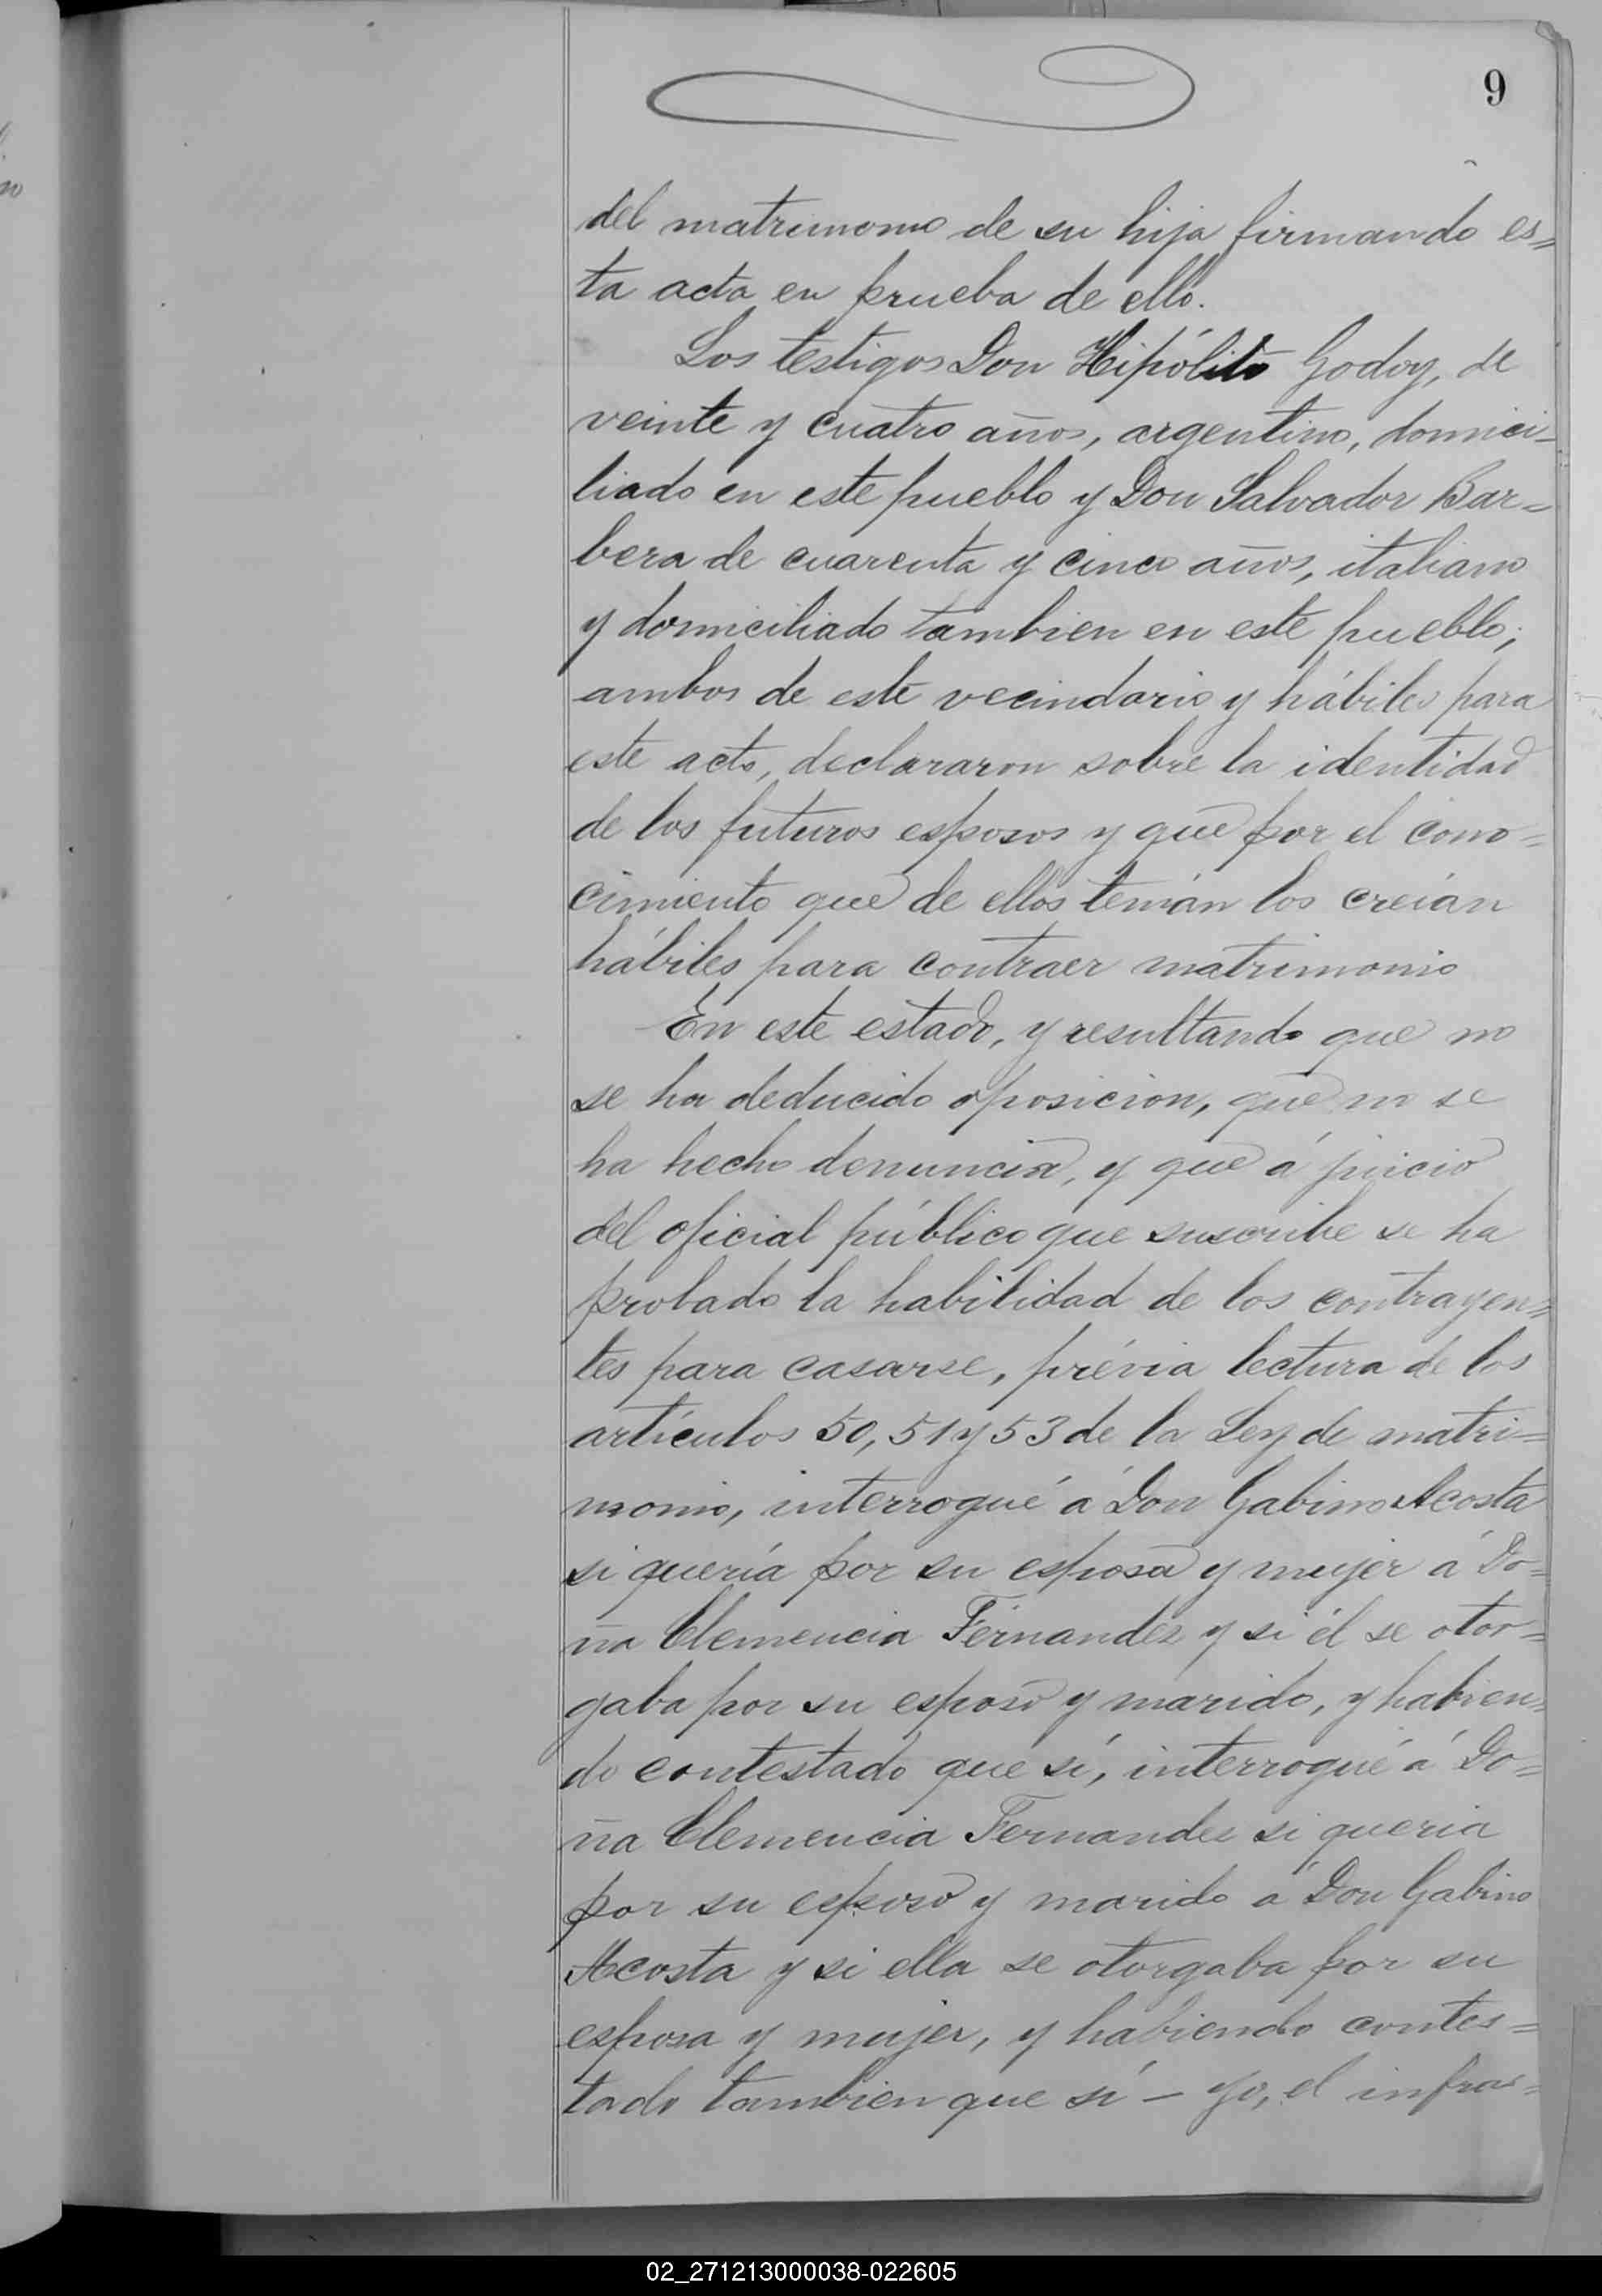 9
del matrimonio de su hija firmando es=
ta acta en prueba de ello.
Los testigos Don Hipólito Godoy, de
veinte y cuatro años, argentino, domici-
liado en este pueblo y Don Salvador Bar=
bera de cuarenta y cinco años, italiano
y domiciliado tambien en este pueblo;
ambos de este vecindario y hábiles para
este acto, declararon sobre la identidad
de los futuros esposos y que por el cono=
cimiento que de ellos tenían los creían
hábiles para contraer matrimonio
En este estado, y resultando que no
se ha deducido oposicion, que no se
ha hecho denuncia, y que á juicio
del oficial público que suscribe se ha
probado la habilidad de los contrayen=
tes para casarse, prévia lectura de los
artículos 50, 51 y 53 de la Ley de matri=
monio, interrogué á Don Gabino Acosta
si quería por su esposa y mujer á Do=
ña Clemencia Fernandez y si él se otor=
gaba por su esposo y marido, y habien=
do contestado que sí, interrogué á Do=
ña Clemencia Fernandez si queria
por su esposo y marido á Don Gabino
Acosta y si ella se otorgaba por su
esposa y mujer, y habiendo contes=
tado tambien que sí — Yo, el infras=
02_271213000038-022605